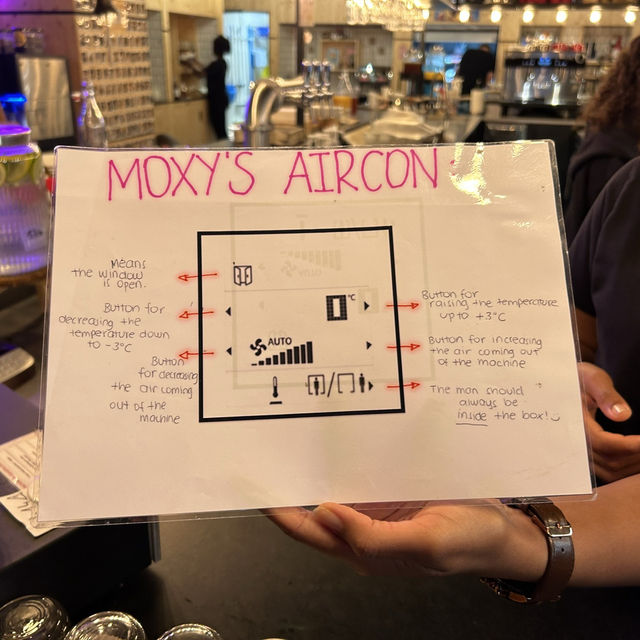 MOXY'S AIRCON:
Means
the window
is open.
Button for
decreasing the
temperature down
to -3°C
Button
for decreasing
the air coming
out of the
machine
0 °C
AUTO
Button for
raising the temperature
up to +3°C
Button for increasing
the air coming out
of the machine
The man should
always be
inside the box!